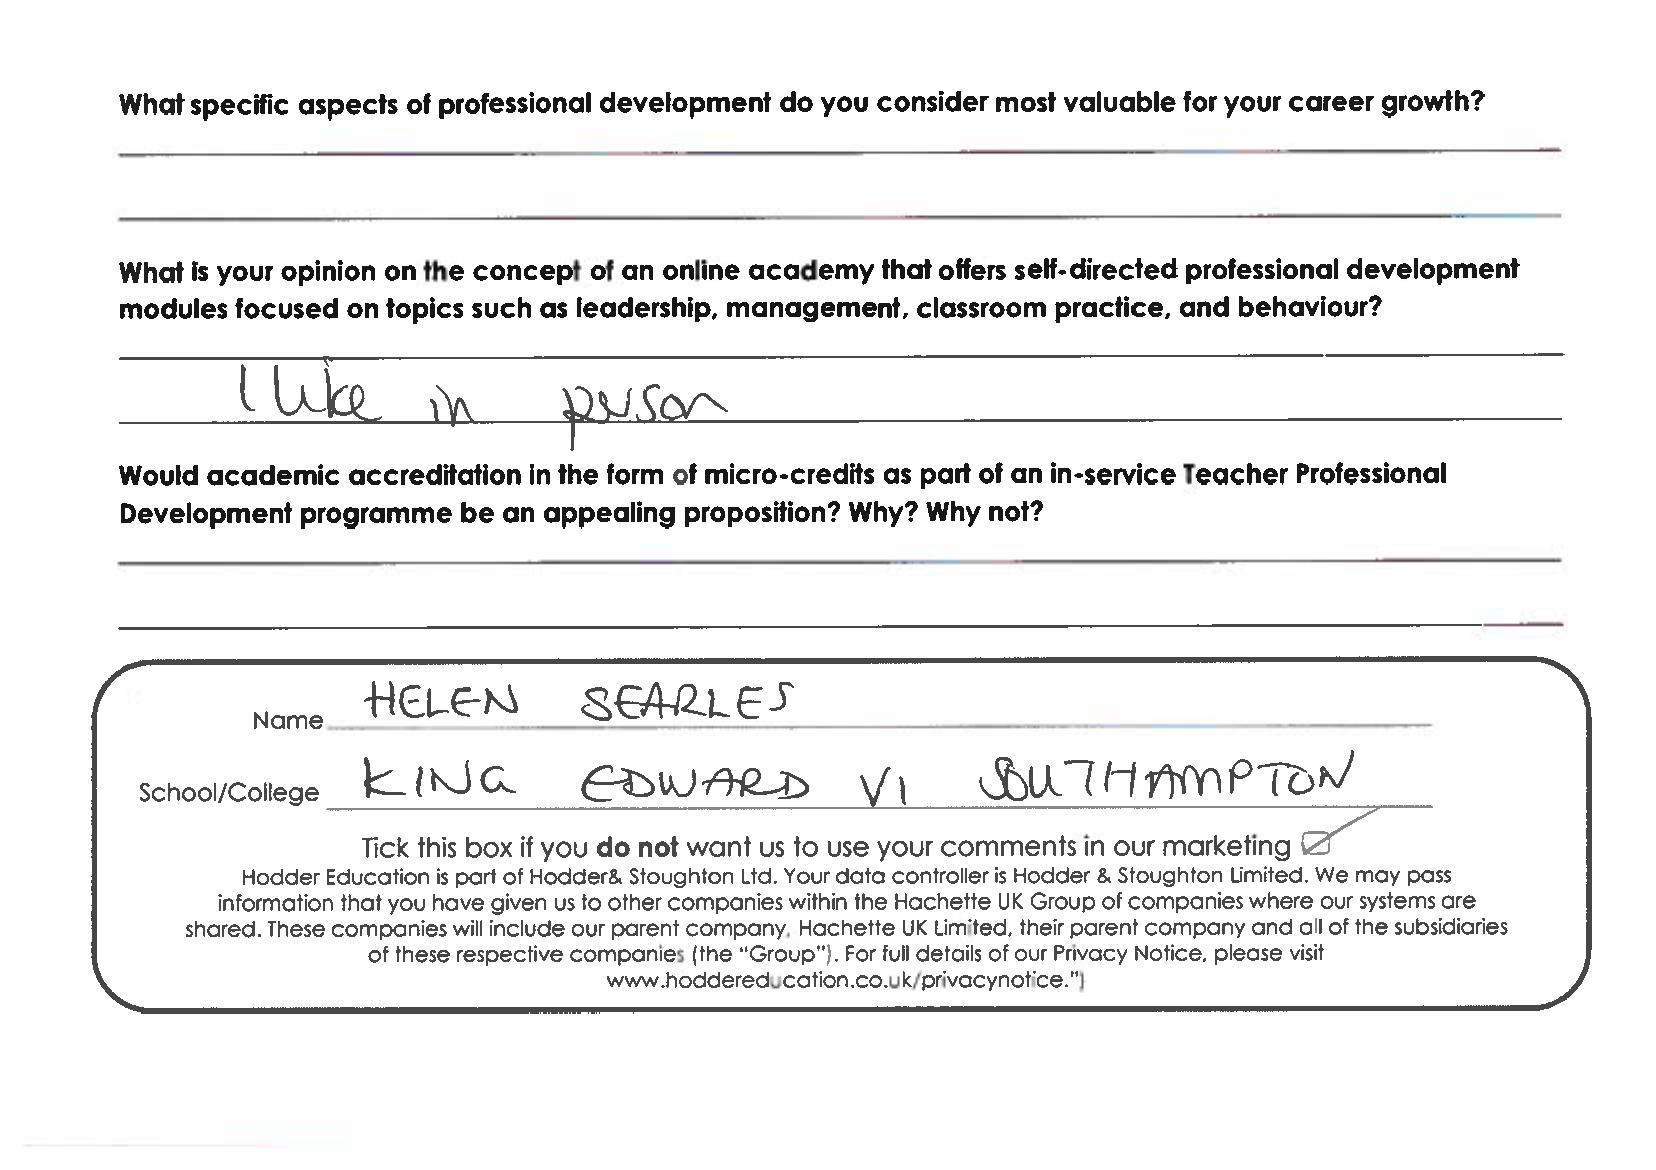 What specific aspects of professional development do you consider most valuable for your career growth?
What is your opinion on the concept of an online academy that offers self-directed professional development
modules focused on topics such as leadership, management, classroom practice, and behaviour?
I like in person
Would academic accreditation in the form of micro-credits as part of an in-service Teacher Professional
Development programme be an appealing proposition? Why? Why not?
Name HELEN SEARLES
School/College KING EDWARD VI SOUTHAMPTON
Tick this box if you do not want us to use your comments in our marketing
Hodder Education is part of Hodder& Stoughton Ltd. Your data controller is Hodder & Stoughton Limited. We may pass
information that you have given us to other companies within the Hachette UK Group of companies where our systems are
shared. These companies will include our parent company, Hachette UK Limited, their parent company and all of the subsidiaries
of these respective companies (the "Group"). For full details of our Privacy Notice, please visit
www.hoddereducation.co.uk/privacynotice.")